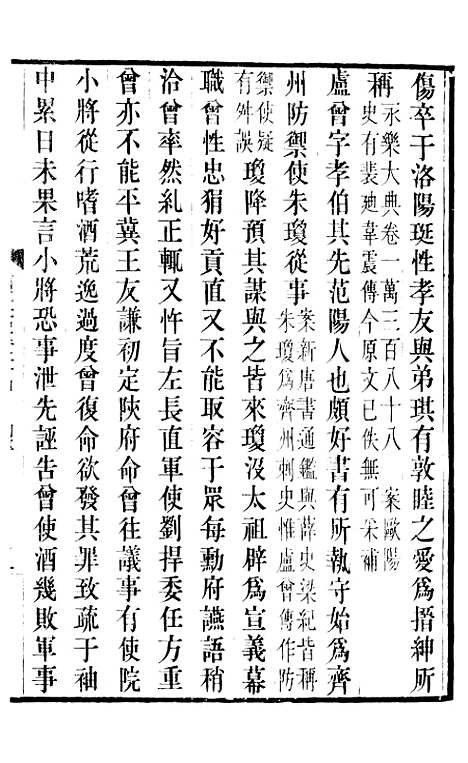 傷卒于洛陽珽性孝友與弟琪有敦睦之愛爲搢紳所
稱永樂大典卷一萬三百八十八　案歐陽
史有裴廸韋震傳今原文已佚無可采補
盧曾字孝伯其先范陽人也頗好書有所執守始爲齊
州防禦使朱瓊從事案新唐書通鑑與薛史梁紀皆稱
朱瓊爲齊州刺史惟盧曾傳作防
禦使疑
有舛誤瓊降預其謀與之皆來瓊沒太祖辟爲宣義幕
職曾性忠狷好貢直又不能取容于眾每勳府讌語稍
洽曾率然糺正輒又忤旨左長直軍使劉捍委任方重
曾亦不能平冀王友謙初定陝府命曾往議事有使院
小將從行嗜酒荒逸過度曾復命欲發其罪致疏于袖
中累日未果言小將恐事泄先誣吿曾使酒幾敗軍事